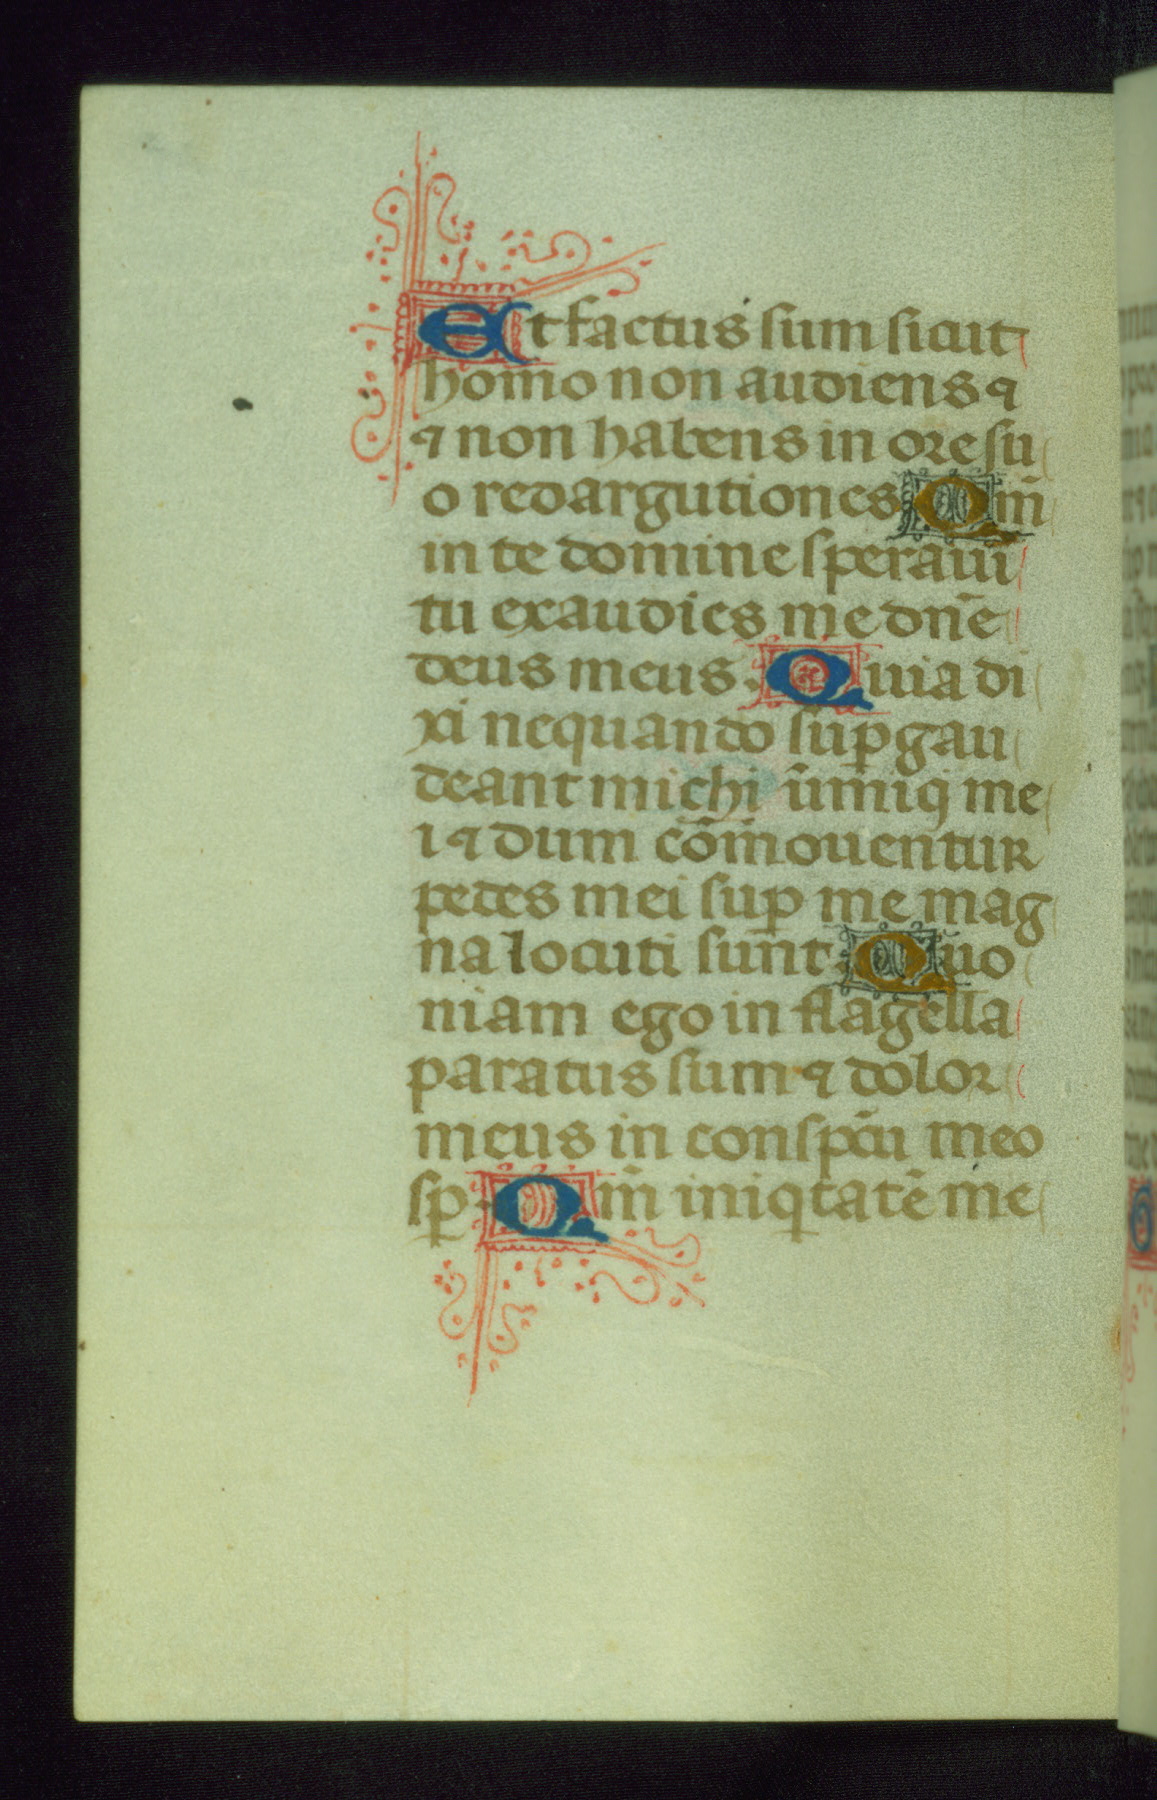 Et factus sum sicut
homo non audiens ⁊
⁊ non habens in ore su
o redargutiones Qm̄
in te domine speraui
tu exaudies me dn̄e
deus meus. Quia di
xi nequando suꝑgau
deant michi inimici me
i ⁊ dum cōmouentur
pedes mei suꝑ me mag
na locuti sunt. Quo
niam ego in flagella
paratus sum ⁊ dolor
meus in conspc̄u meo
sꝑ. Qm̄ iniqtatē me